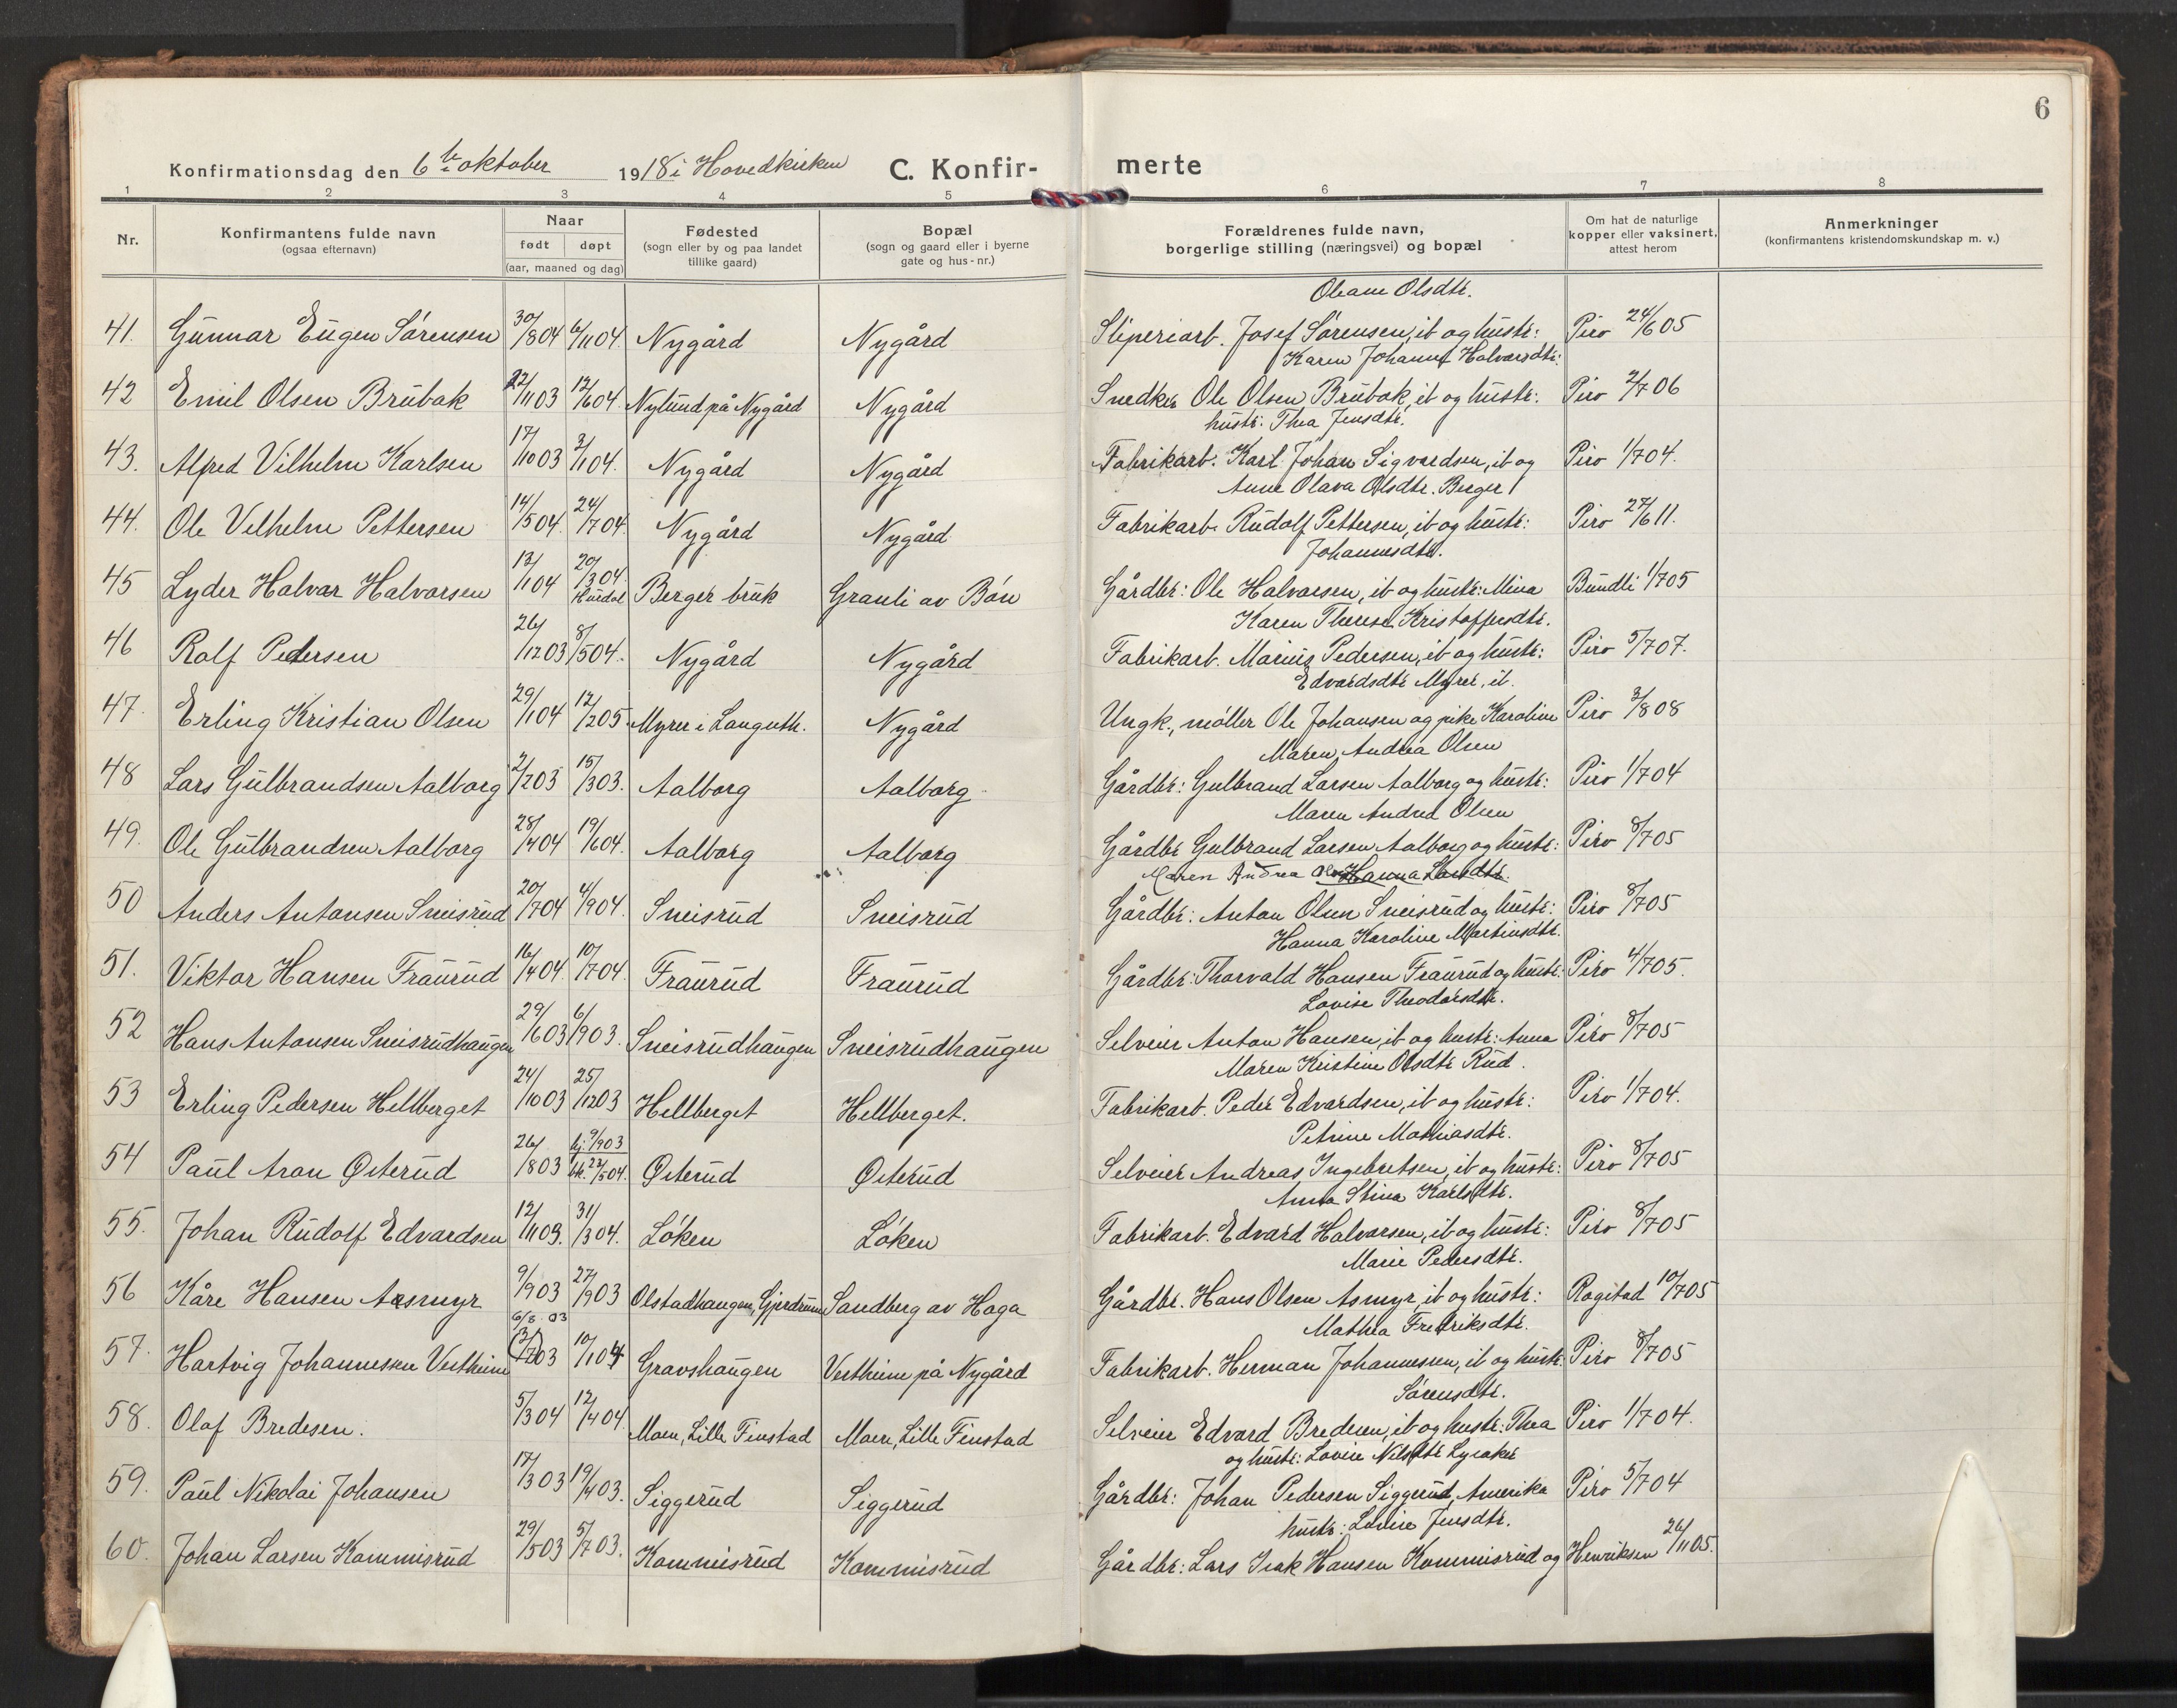 6
Konfirmationsdag den 6te oktober 1918 i Hovedkirken C. Konfir- merte
1 2 3 4 5 6 7 8
Nr.
Konfirmantens fulde navn
(ogsaa efternavn)
Naar
født døpt
(aar, maaned og dag)
Fødested
(sogn eller by og paa landet
tillike gaard)
Bopæl
(sogn og gaard eller i byerne
gate og hus-nr.)
Forældrenes fulde navn,
borgerlige stilling (næringsvei) og bopæl
Om hat de naturlige
kopper eller vaksinert,
attest herom
Anmerkninger
(konfirmantens kristendomskundskap m. v.)
Oleane Olsdtr.
41. Gunnar Eugen Sørensen 30/8 04 6/11 04. Nygård Nygård Sliperiarb. Josef Sørensen, ib og hustr: Piro 24/6 05
Karen Johanne Halvorsdtr:
42 Emil Olsen Brubak 22/11 03 12/6 04. Nylund på Nygård Nygård Snedker Ole Olsen Brubak, ib og hustr: Piro 2/7 06
hustr: Thea Jensdtr.
43. Alfred Vilhelm Karlsen 17/10 03 3/1 04. Nygård Nygård Fabrikarb. Karl Johan Sigvardsen, ib og Piro 1/7 04.
Anne Olava Olsdtr. Berger
44. Ole Vilhelm Pettersen 14/5 04. 24/7 04. Nygård Nygård Fabrikarb. Rudolf Pettersen, ib og hustr: Piro 27/6 11.
Johannesdtr.
45 Lyder Halvar Halvorsen 13/1 04 20/3 04. Hurdal Berger bruk Granli av Bøn Gårdbr: Ole Halvorsen, ib og hustr: Mina Bundli 1/7 05
Karen Therese Kristoffersdtr.
46 Rolf Pedersen 26/12 03 8/5 04. Nygård Nygård Fabrikarb. Marius Pedersen, ib og hustr: Piro 5/7 07.
Edvardsdtr Myrer, ib.
47. Erling Kristian Olsen 29/1 04 12/2 05 Myrer i Languth. Nygård Ungk., møller Ole Johansen og pike Karoline Piro 3/8 08
Maren Andrea Olsen
48 Lars Gulbrandsen Aalborg 2/2 03 15/3 03. Aalborg Aalborg Gårdbr: Gulbrand Larsen Aalborg og hustr: Piro 1/7 04
Maren Andrea Olsen
49. Ole Gulbrandsen Aalborg 28/4 04 19/6 04. Aalborg Aalborg Gårdbr Gulbrand Larsen Aalborg og hustr: Piro 8/7 05
Maren Andrea Hanna Larsdtr.
50 Anders Antonsen Sneisrud 20/7 04 4/9 04. Sneisrud Sneisrud Gårdbr: Anton Olsen Sneisrud og hustr: Piro 8/7 05
Hanna Karoline Martinsdtr.
51. Viktor Hansen Fraurud 16/4 04. 10/7 04. Fraurud Fraurud Gårdbr: Thorvald Hansen Fraurud og hustr: Piro 4/7 05.
Lovise Theodorsdtr.
52 Hans Antonsen Sneisrudhaugen 29/6 03 6/9 03. Sneisrudhaugen Sneisrudhaugen Selveier Anton Hansen, ib og hustr: Anna Piro 8/7 05
Maren Kristine Olsdtr Rud.
53 Erling Pedersen Hellberget 24/10 03 25/12 03 Hellberget Hellberget. Fabrikarb. Peder Edvardsen, ib og hustr: Piro 1/7 04.
Petrine Mathiasdtr.
54 Paul Aron Østerud 26/8 03 hj. 9/9 03 bk. 22/5 04. Østerud Østerud Selveier Andreas Ingebretsen, ib og hustr: Piro 8/7 05
Anna Stina Karlsdtr.
55. Johan Rudolf Edvardsen 12/11 03. 31/3 04. Løken Løken Fabrikarb. Edvard Halvorsen, ib og hustr: Piro 8/7 05
Marie Pedersdtr.
56 Kåre Hansen Aasmyr 9/9 03 27/9 03 Olstadhaugen, Gjerdrum Sandberg av Haga Gårdbr. Hans Olsen Asmyr, ib og hustr: Rogstad 10/7 05
Mathea Fredriksdtr.
57. Hartvig Johannessen Vestheim 6/8 03 (3/12 03 10/1 04 Gravshaugen Vestheim på Nygård Fabrikarb. Herman Johannessen, ib og hustr: Piro 8/7 05
Sørensdtr.
58. Olaf Bredesen. 5/3 04 12/4 04 Moen, Lille Finstad Moen, Lille Finstad Selveier Edvard Bredesen, ib og hustr: Thea Piro 1/7 04.
og hustr: Lovise Nilsdtr Lysaker
59. Paul Nikolai Johansen 17/3 03 19/4 03. Siggerud Siggerud Gårdbr: Johan Pedersen Siggerud, Amerika Piro 5/7 04
hustr: Lovise Jensdtr.
60. Johan Larsen Kommisrud 29/5 03 5/7 03. Kommisrud Kommisrud Gårdbr: Lars Isak Hansen Kommisrud og Henriksen 26/11 05.